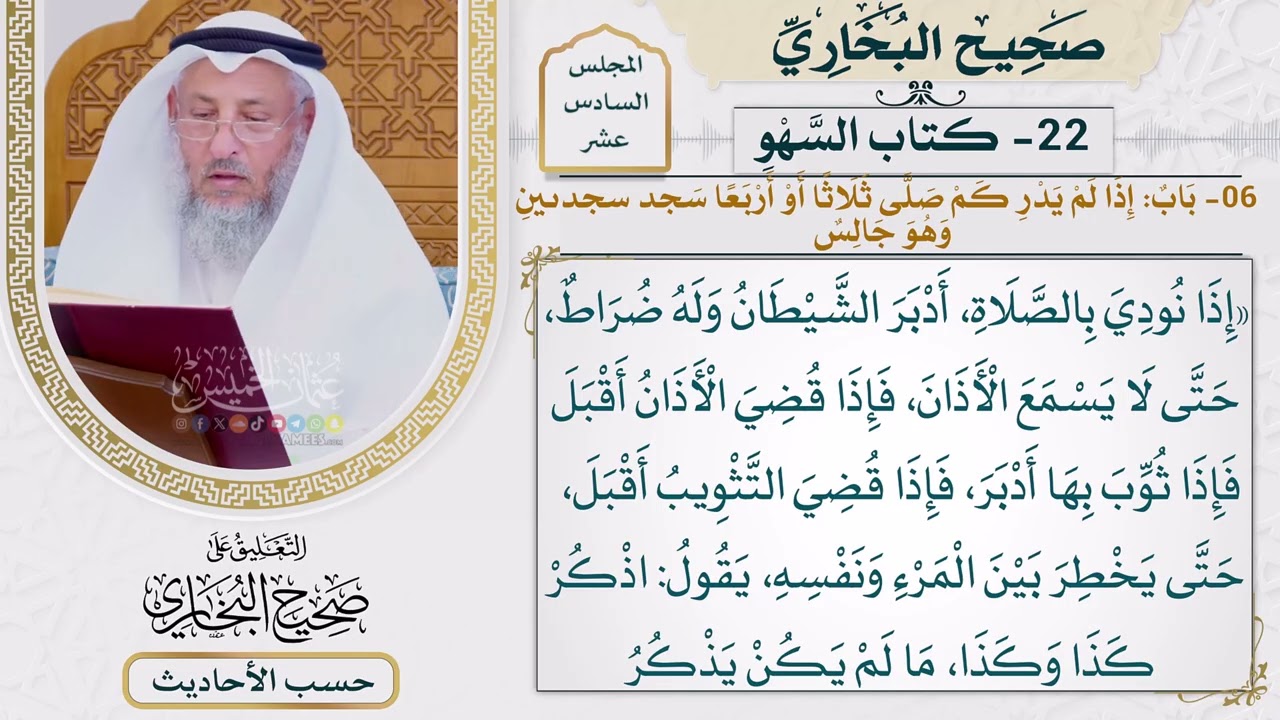 صَحِيح البُخَارِيِّ
المجلس
السادس
عشر
22- كتاب السَّهْوِ
06- بَابٌ: إِذَا لَمْ يَدْرِ كَمْ صَلَّى ثَلَاثًا أَوْ أَرْبَعًا سَجد سجدىىنِ
وَهُوَ جَالِسٌ
«إِذَا نُودِيَ بِالصَّلَاةِ، أَدْبَرَ الشَّيْطَانُ وَلَهُ ضُرَاطٌ،
حَتَّى لَا يَسْمَعَ الْأَذَانَ، فَإِذَا قُضِيَ الْأَذَانُ أَقْبَلَ
فَإِذَا ثُوِّبَ بِهَا أَدْبَرَ، فَإِذَا قُضِيَ التَّثْوِيبُ أَقْبَلَ،
حَتَّى يَخْطِرَ بَيْنَ الْمَرْءِ وَنَفْسِهِ، يَقُولُ: اذْكُرْ
كَذَا وَكَذَا، مَا لَمْ يَكُنْ يَذْكُرُ
عثمان الخميس
التَّعْلِيقُ عَلَى
صَحِيحُ البُخَارِي
حسب الأحاديث